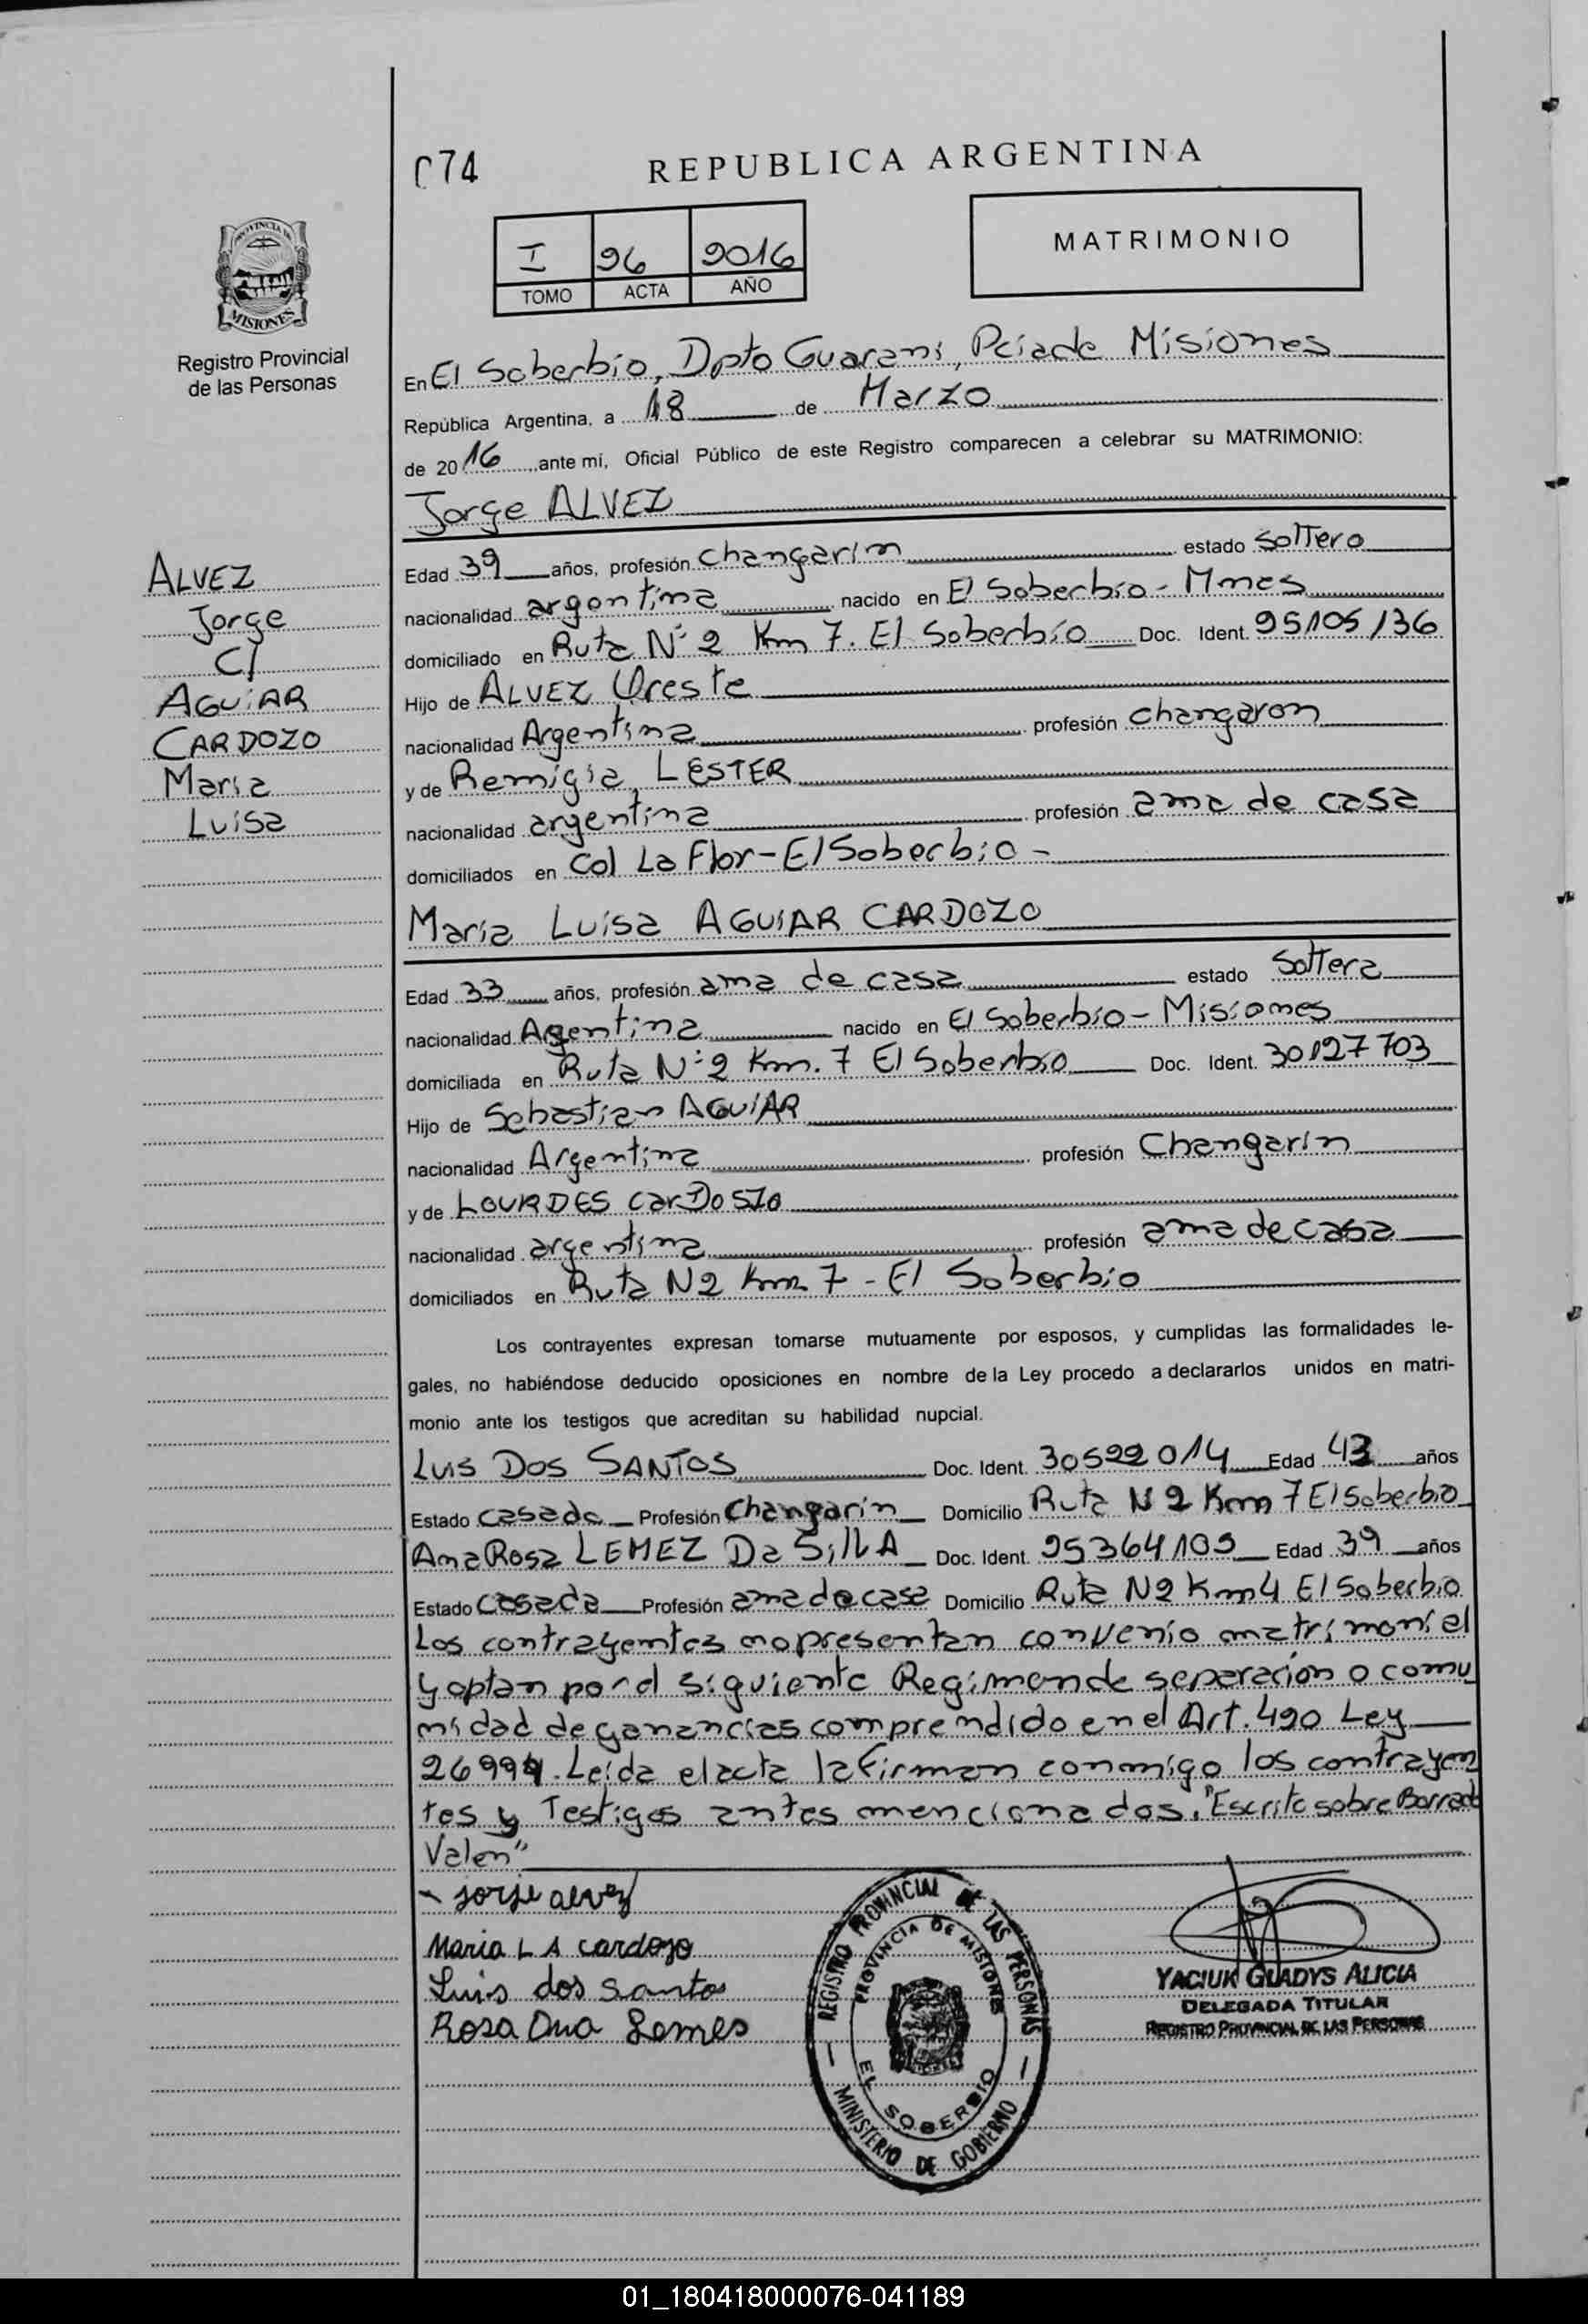 074
REPUBLICA ARGENTINA
PROVINCIA DE
MISIONES
Registro Provincial
de las Personas
I 96 2016
TOMO ACTA AÑO
MATRIMONIO
En El Soberbio, Dpto Guarani, Pcia de Misiones
República Argentina, a 18 de Marzo
de 2016, ante mí, Oficial Público de este Registro comparecen a celebrar su MATRIMONIO:
Jorge ALVEZ
Edad 39 años, profesión changarin estado soltero
nacionalidad argentina nacido en El Soberbio - Mnes
domiciliado en Ruta N° 2 Km 7. El Soberbio Doc. Ident. 95105136
Hijo de ALVEZ Oreste
nacionalidad Argentina profesión changaron
y de Remigia, LESTER
nacionalidad argentina profesión ama de casa
domiciliados en Col La Flor - El Soberbio -
Maria Luisa AGUIAR CARDOZO
Edad 33 años, profesión ama de casa estado Soltera
nacionalidad Argentina nacido en El Soberbio - Misiones
domiciliada en Ruta N° 2 Km. 7 El Soberbio Doc. Ident. 30127703
Hijo de Sebastian AGUIAR
nacionalidad Argentina profesión Changarin
y de LOURDES CarDoSZo
nacionalidad argentina profesión ama de casa
domiciliados en Ruta N 2 Km 7 - El Soberbio
Los contrayentes expresan tomarse mutuamente por esposos, y cumplidas las formalidades le-
gales, no habiéndose deducido oposiciones en nombre de la Ley procedo a declararlos unidos en matri-
monio ante los testigos que acreditan su habilidad nupcial.
Luis DOS SANTOS Doc. Ident. 30522014 Edad 43 años
Estado casado Profesión Changarin Domicilio Ruta N 2 Km 7 El Soberbio
Ana Rosa LEMEZ Da SilVA Doc. Ident. 95364109 Edad 39 años
Estado Casada Profesión ama de casa Domicilio Ruta N 2 Km 4 El Soberbio
Los contrayentes no presentan convenio matrimonial
y optan por el siguiente Regimen de separación o comu
nidad de ganancias comprendido en el Art. 490 Ley
26994. Leída el acta la firman conmigo los contrayen
tes y Testigos antes mencionados. "Escrito sobre Borrado
Valen"
Jorje alvez
Maria L A Cardozo
Luis dos Santos
Rosa Ana Lemes
REGISTRO PROVINCIAL DE LAS PERSONAS
MINISTERIO DE GOBIERNO
PROVINCIA DE MISIONES
EL SOBERBIO
YACIUK GLADYS ALICIA
DELEGADA TITULAR
REGISTRO PROVINCIAL DE LAS PERSONAS
ALVEZ
Jorge
C/
AGUIAR
CARDOZO
Maria
Luisa
01_180418000076-041189